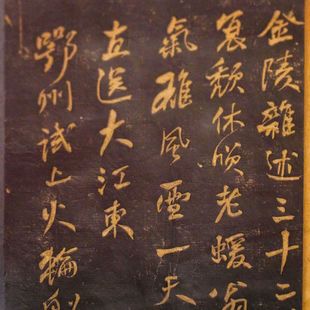 金陵雜述三十二
衰頹休喚老蝯翁
氣雄風雪一天
直送大江東
鄂州試上火輪